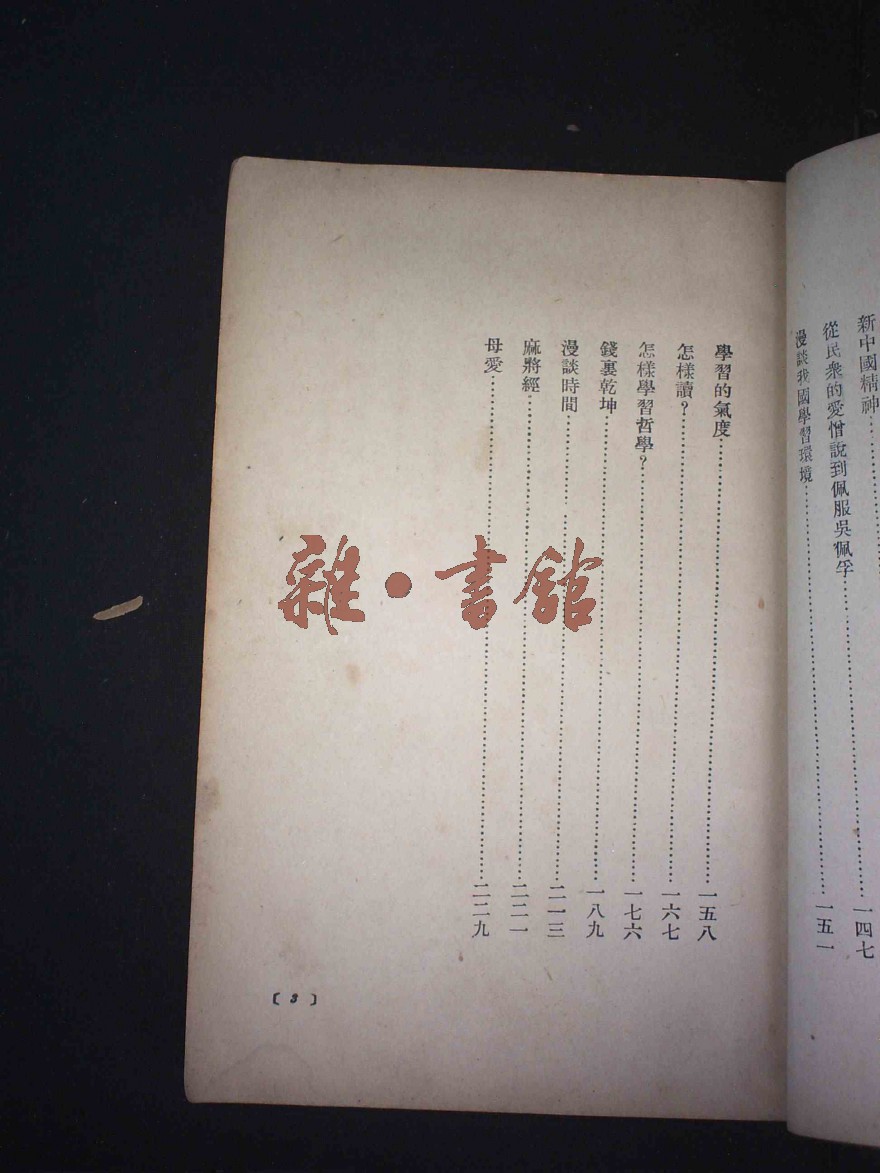 新中國精神……一四七
從民衆的愛憎說到佩服吳佩孚……
漫談我國學習環境……一五一
學習的氣度……一五八
怎樣讀？……一六七
怎樣學習哲學？……一七六
錢裏乾坤……一八九
漫談時間……二一三
麻將經……二二一
母愛……二二九
〔3〕
雜·書館